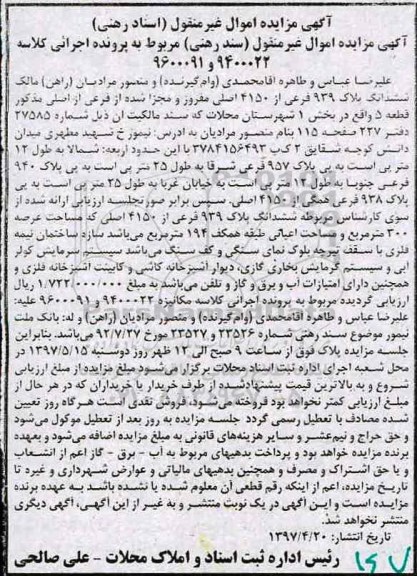 آگهی مزایده اموال غیرمنقول (اسناد رهنی)
آگهی مزایده اموال غیرمنقول (سند رهنی) مربوط به پرونده اجرائی کلاسه
۹۴۰۰۰۲۲ و ۹۶۰۰۰۹۱
علیرضا عباس و طاهره آقامحمدی (وام‌گیرنده) و منصور مرادیان (راهن) مالک
ششدانگ پلاک ۹۳۹ فرعی از ۴۱۵۰ اصلی مفروز و مجزا شده از فرعی از اصلی مذکور
قطعه ۵ واقع در بخش ۱ شهرستان محلات که سند مالکیت آن ذیل شماره ۲۷۵۸۵
دفتر ۲۳۷ صفحه ۱۱۵ بنام منصور مرادیان به آدرس: نیمور خ شهید مطهری میدان
دانش کوچه شقایق ۲ ک‌پ ۳۷۸۴۱۵۶۴۹۳ با این حدود اربعه: شمالا به طول ۱۲
متر پی است به پی پلاک ۹۵۷ فرعی شرقا به طول ۲۵ متر پی است به پی پلاک ۹۴۰
فرعی جنوبا به طول ۱۲ متر پی است به خیابان غربا به طول ۲۵ متر پی است به پی
پلاک ۹۳۸ فرعی همگی از ۴۱۵۰ اصلی. سپس برابر صورتجلسه ارزیابی ارائه شده از
سوی کارشناس مربوطه ششدانگ پلاک ۹۳۹ فرعی از ۴۱۵۰ اصلی که مساحت عرصه
۳۰۰ مترمربع و مساحت اعیانی طبقه همکف ۱۹۴ مترمربع می‌باشد سازه ساختمان نیمه
فلزی با سقف تیرچه بلوک نمای سنگی و کف سنگ می‌باشد سیستم سرمایش کولر
آبی و سیستم گرمایش بخاری گازی، دیوار آشپزخانه کاشی و کابینت آشپزخانه فلزی و
همچنین دارای امتیازات آب و برق و گاز و تلفن می‌باشد به مبلغ ۱/۷۲۲/۰۰۰/۰۰۰ ریال
ارزیابی گردیده مربوط به پرونده اجرائی کلاسه مکانیزه ۹۴۰۰۰۲۲ و ۹۶۰۰۰۹۱ علیه:
علیرضا عباس و طاهره آقامحمدی (وام‌گیرنده) و منصور مرادیان (راهن) و له: بانک ملت
نیمور موضوع سند رهنی شماره ۲۳۵۲۶ و ۲۳۵۲۷ مورخ ۹۲/۷/۲۷ می‌باشد. بنابراین
جلسه مزایده پلاک فوق از ساعت ۹ صبح الی ۱۲ ظهر روز دوشنبه ۱۳۹۷/۵/۱۵ در
محل شعبه اجرای اداره ثبت اسناد محلات برگزار می‌شود مبلغ مزایده از مبلغ ارزیابی
شروع و به بالاترین قیمت پیشنهادشده از طرف خریدار یا خریداران که در هر حال از
مبلغ ارزیابی کمتر نخواهد بود فروخته می‌شود، فروش نقدی است هرگاه روز تعیین
شده مصادف با تعطیل رسمی گردد جلسه مزایده به روز بعد از تعطیل موکول می‌شود
و حق حراج و نیم‌عشر و سایر هزینه‌های قانونی به مبلغ مزایده اضافه می‌شود و بعهده
برنده مزایده خواهد بود و پرداخت بدهیهای مربوط به آب - برق - گاز اعم از انشعاب
و یا حق اشتراک و مصرف و همچنین بدهیهای مالیاتی و عوارض شهرداری و غیره تا
تاریخ مزایده، اعم از اینکه رقم قطعی آن معلوم شده یا نشده باشد به عهده برنده
مزایده است و این آگهی در یک نوبت منتشر و به غیر از این آگهی، آگهی دیگری
منتشر نخواهد شد.
تاریخ انتشار: ۱۳۹۷/۴/۲۰
رئیس اداره ثبت اسناد و املاک محلات - علی صالحی